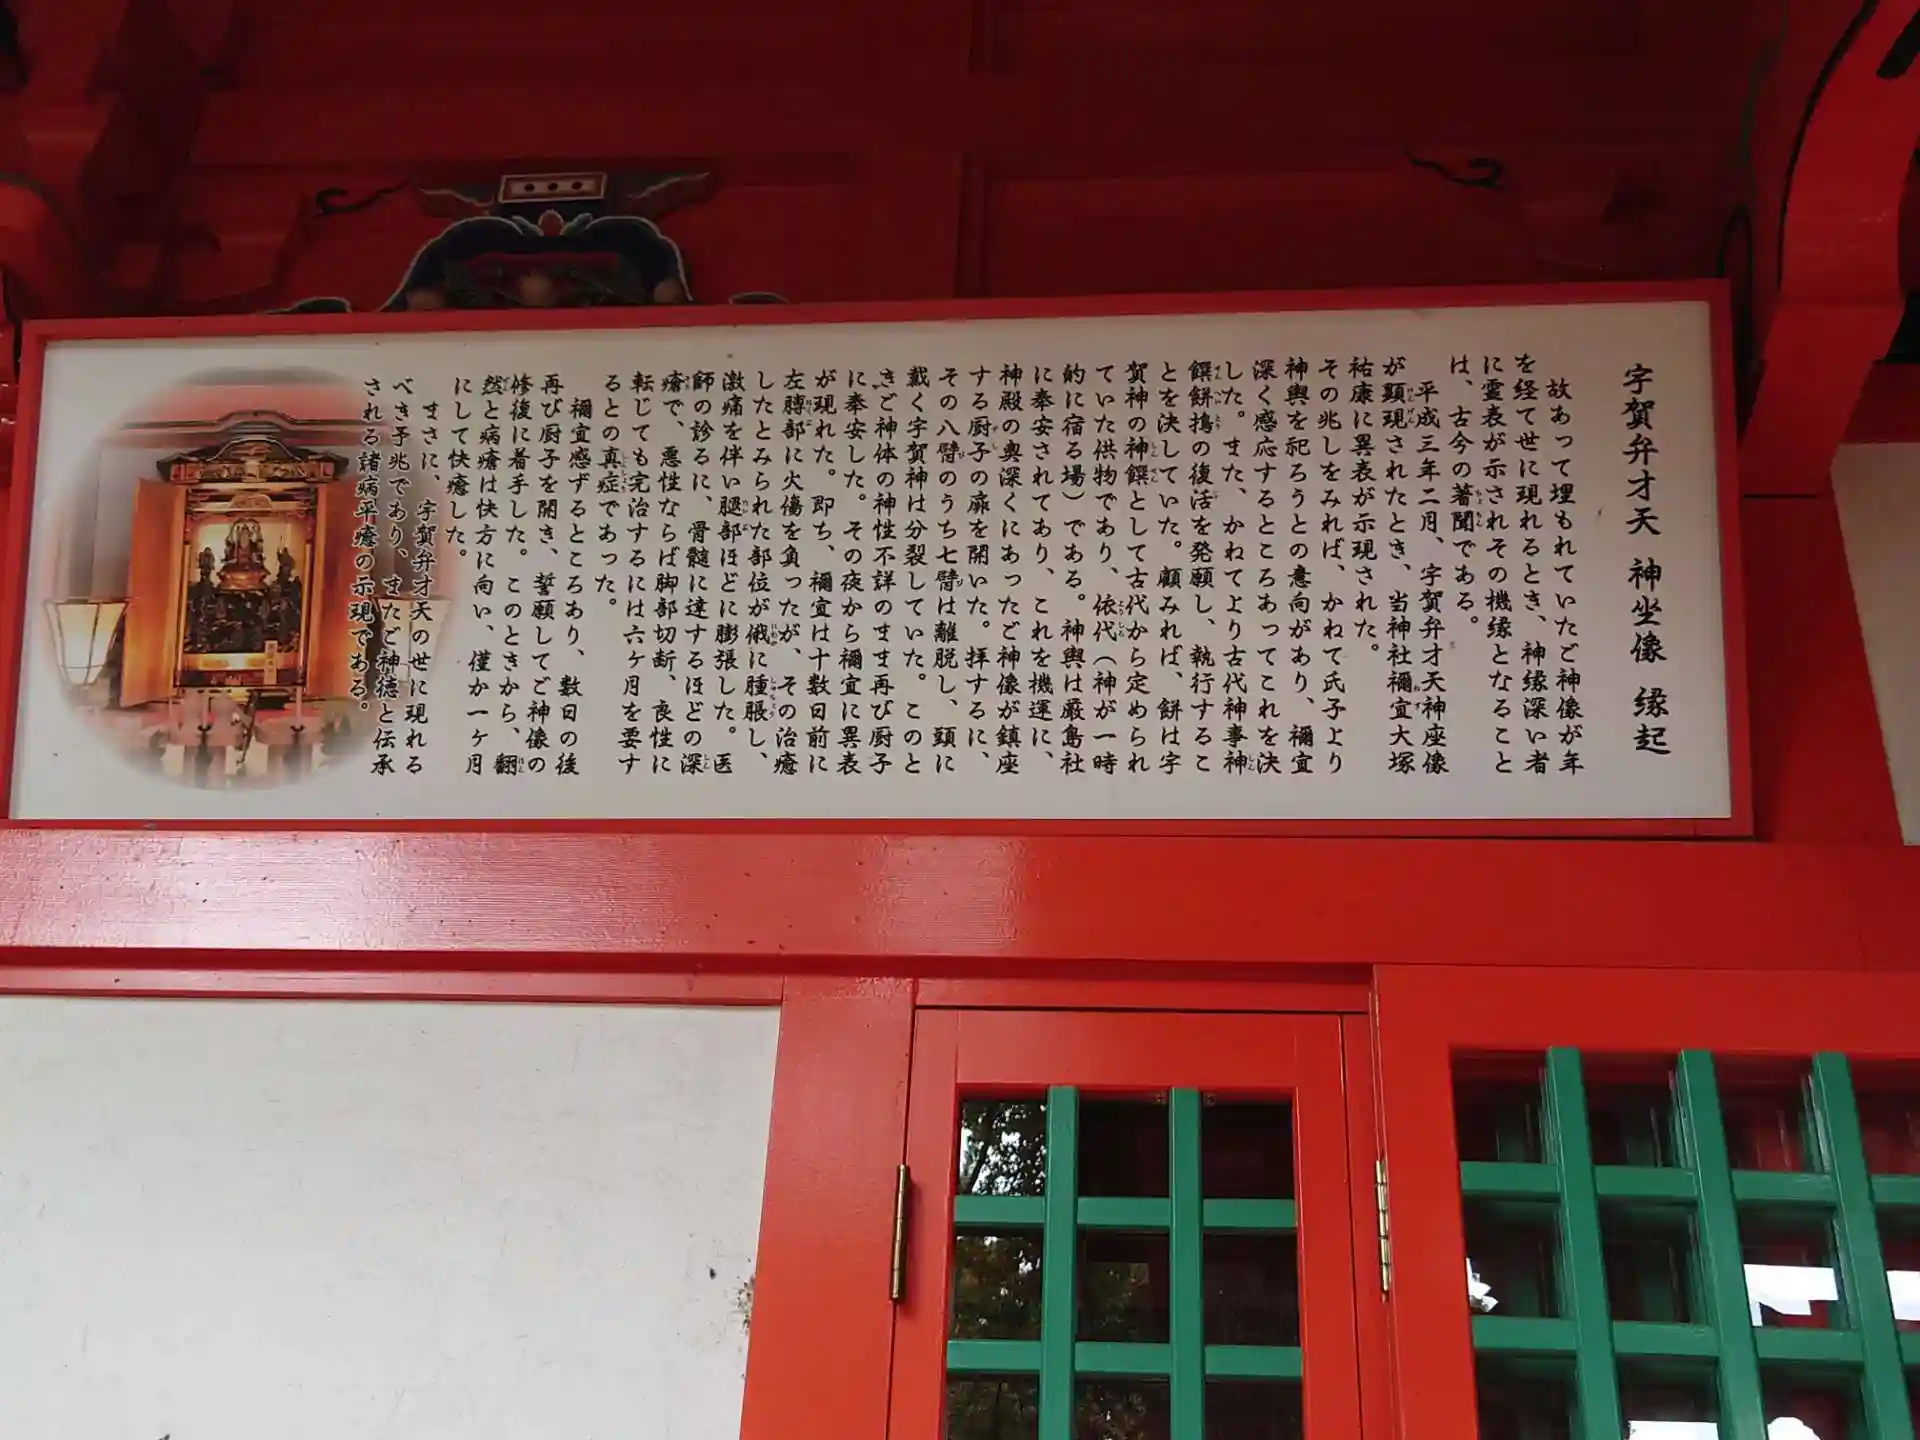 宇賀弁才天 神坐像 縁起
故あって埋もれていたご神像が年
を経て世に現れるとき、神縁深い者
に霊表が示されその機縁となること
は、古今の著聞である。
平成三年二月、宇賀弁才天神座像
が顕現されたとき、当神社禰宜大塚
祐康に異表が示現された。
その兆しをみれば、かねて氏子より
神輿を祀ろうとの意向があり、禰宜
深く感応するところあってこれを決
した。また、かねてより古代神事神
饌餅搗の復活を発願し、執行するこ
とを決していた。顧みれば、餅は宇
賀神の神饌として古代から定められ
ていた供物であり、依代(神が一時
的に宿る場)である。神輿は厳島社
に奉安されてあり、これを機運に、
神殿の奥深くにあったご神像が鎮座
する厨子の扉を開いた。拝するに、
その八臂のうち七臂は離脱し、頭に
戴く宇賀神は分裂していた。このと
きご神体の神性不詳のまま再び厨子
に奉安した。その夜から禰宜に異表
が現れた。即ち、禰宜は十数日前に
左膊部に火傷を負ったが、その治癒
したとみられた部位が俄に腫脹し、
激痛を伴い腿部ほどに膨張した。医
師の診るに、骨髄に達するほどの深
瘡で、悪性ならば脚部切断、良性に
転じても完治するには六ヶ月を要す
るとの真症であった。
禰宜感ずるところあり、数日の後
再び厨子を開き、誓願してご神像の
修復に着手した。このときから、翻
然と病瘡は快方に向い、僅か一ヶ月
にして快癒した。
まさに、宇賀弁才天の世に現れる
べき予兆であり、またご神徳と伝承
される諸病平癒の示現である。